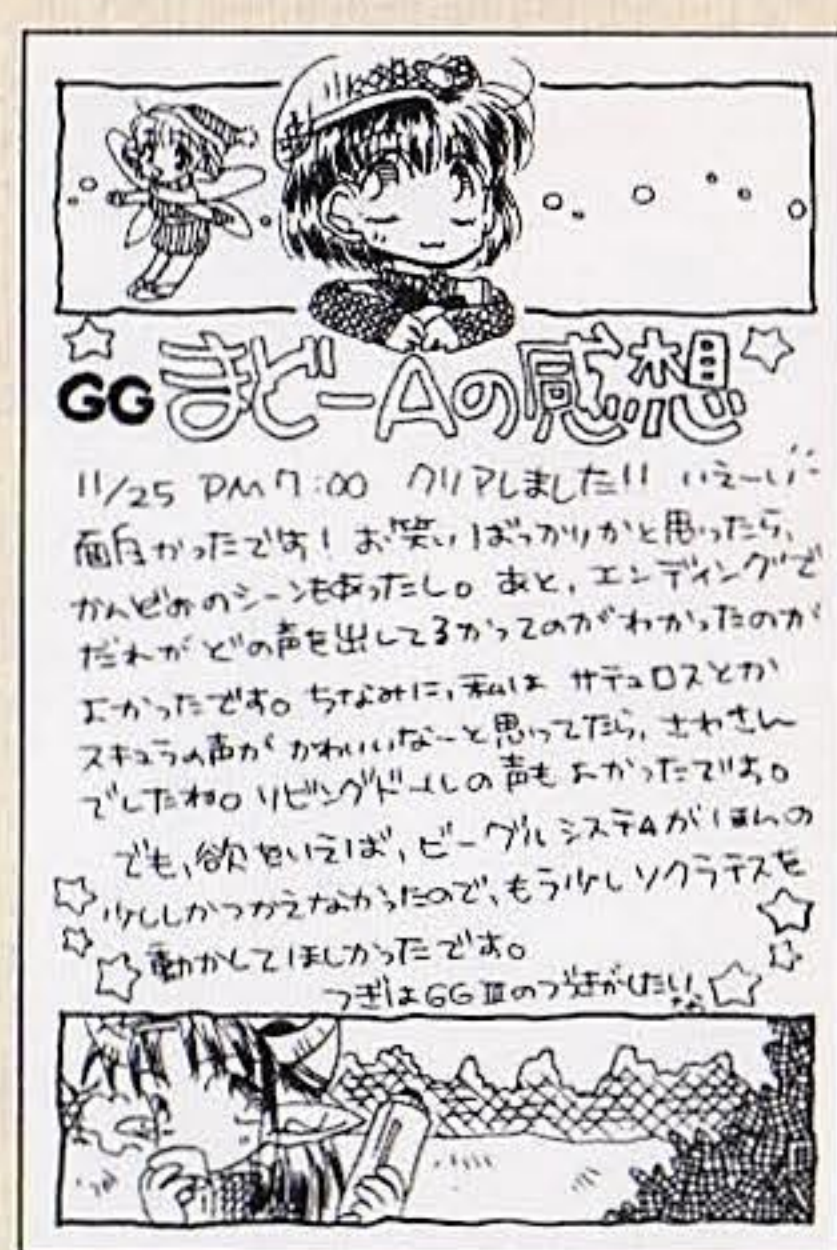 GGまどーAの感想
11/25 PM7:00 クリアしました!! いえーい
面白かったです! お笑いばっかりかと思ったら、
かんどおのシーンもあったし。あと、エンディングで
だれがどの声を出してるかってのがわかったのが
よかったです。ちなみに、私は サテュロスとか
スキュラの声が かわいいなーと思ってたら、さわさん
でしたね。リビングドールの声もよかったです。
でも、欲をいえば、ビーグルシステムがほんの
少ししかつかえなかったので、もう少しソクラテスを
動かしてほしかったです。
つぎはGGⅢのつづきがしたいな